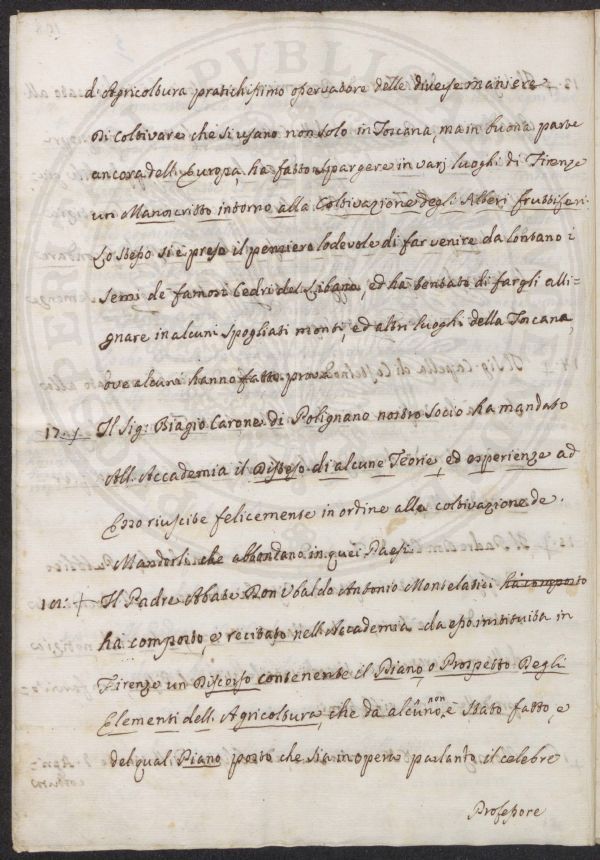 d'Agricoltura pratichissimo osservatore delle diverse maniere
di coltivare che si usano non solo in Toscana, ma in buona parte
ancora dell'Europa, ha fatto spargere in varj luoghi di Firenze
un Manoscritto intorno alla Coltivazione degli Alberi fruttiferi.
Lo stesso si è preso il pensiero lodevole di far venire da lontano i
semi de famosi Cedri del Libano, ed ha tentato di fargli alli=
gnare in alcuni spogliati monti, ed altri luoghi della Toscana,
ove alcuni hanno fatto prova.
Il Sig: Biagio Carone di Polignano nostro Socio ha mandato
All'Accademia il Disteso di alcune Teorie, ed esperienze ad
Esso riuscite felicemente in ordine alla coltivazione de
Mandorli che abbondano in quei Paesi.
101: + Il Padre Abate Don Ubaldo Antonio Montelatici ha composto
ha composto, e recitato nell'Accademia da esso instituita in
Firenze un Discorso contenente il Piano, o Prospetto Degli
Elementi dell'Agricoltura, che da alcuno non è stato fatto, e
del qual Piano posto che sia in opera parlando il celebre
Professore
PUBLICA
PROSPERITATI